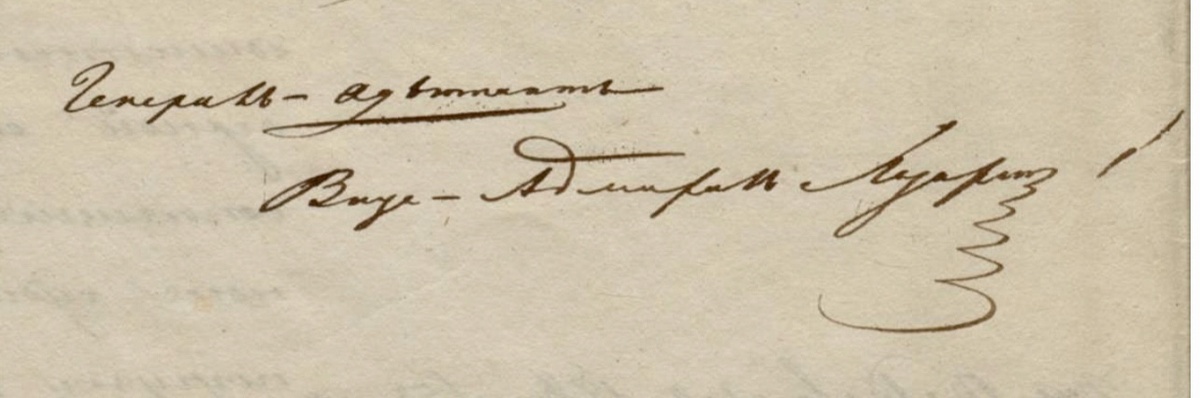 Генералъ- адъютантъ
Вице- Адмиралъ Лазаревъ